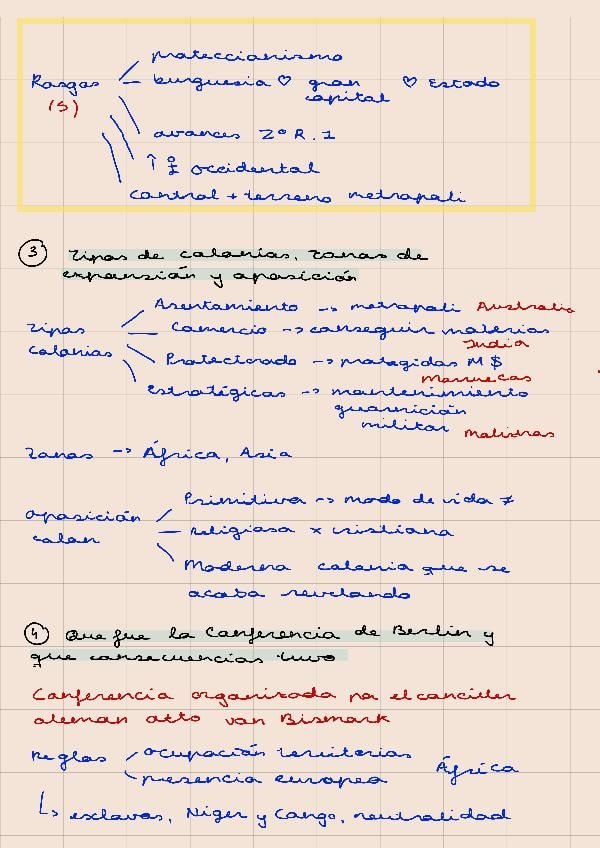 proteccionismo
Rasgos burguesia ♡ gran ♡ Estado
capital
(5)
avances 2º R.I
↑ occidental
control + terreno metropoli
③ Tipos de colonias, zonas de
expansión y oposición
Asentamiento → metropoli Australia
Tipos Comercio → conseguir materias
India
colonias Protectorado → protegidas M $
Marruecos
estratégicas → mantenimiento
guarnición
militar Malvinas
Zonas → África, Asia
Primitiva → modo de vida ≠
oposición religiosa x cristiana
colon
Moderna colonia que se
acaba revelando
④ Que fue la Conferencia de Berlin y
que consecuencias tuvo
Conferencia organizada por el canciller
aleman otto van Bismark
Reglas ocupación territorios África
presencia europea
↳ esclavos, Niger y Congo, neutralidad